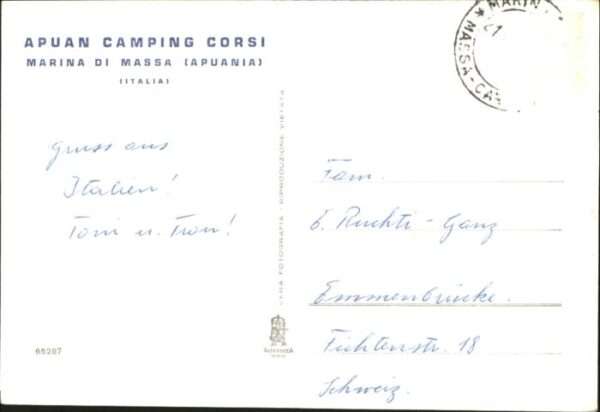 APUAN CAMPING CORSI
MARINA DI MASSA (APUANIA)
(ITALIA)
Gruss aus
Italien!
Toni u.
VERA FOTOGRAFIA - RIPRODUZIONE VIETATA
65287
MARIN
MASSA-CAR
21
Fam.
Ruchti - Ganz
Emmenbrücke.
Fichtenstr. 18
Schweiz.